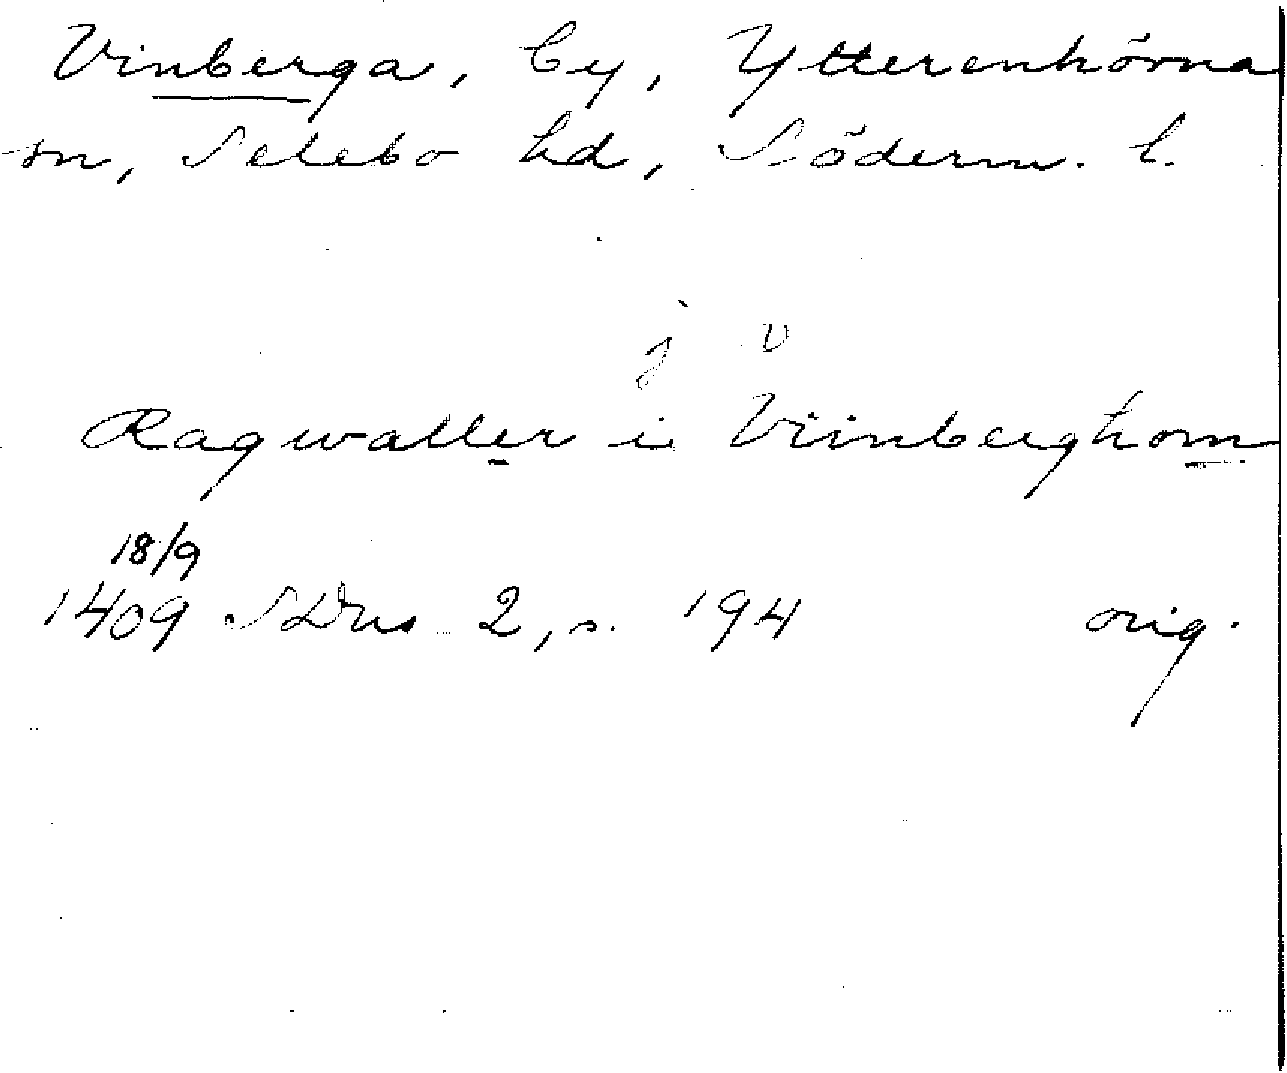 Vinberga, by, Ytterenhörna
sn, Selebo hd, Söderm. l.
j v
Ragwaller i Viinberghom
18/9
1409 SDns 2, s. 194 orig.